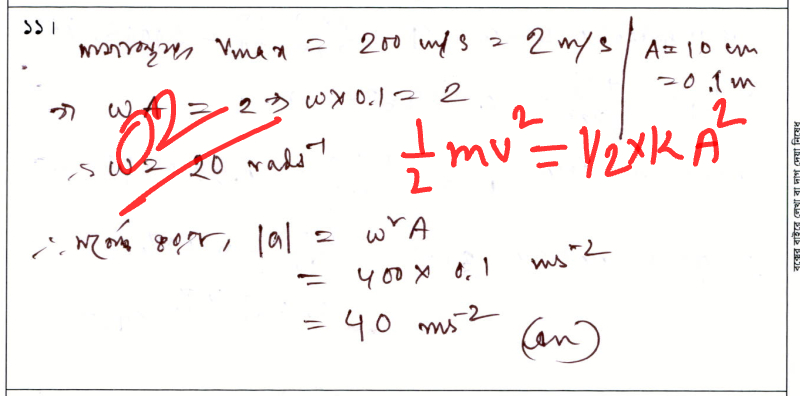 ১১।
Vmax = 200 m/s = 2 m/s | A = 10 cm
= 0.1 m
⇒ ωA = 2 ⇒ ω × 0.1 = 2
02
∴ ω = 20 rads⁻¹
½ mv² = 1/2 × K A²
∴ |a| = ω²A
= 400 × 0.1 ms⁻²
= 40 ms⁻² (an)
বক্সের বাইরে লেখা বা দাগ দেয়া নিষেধ